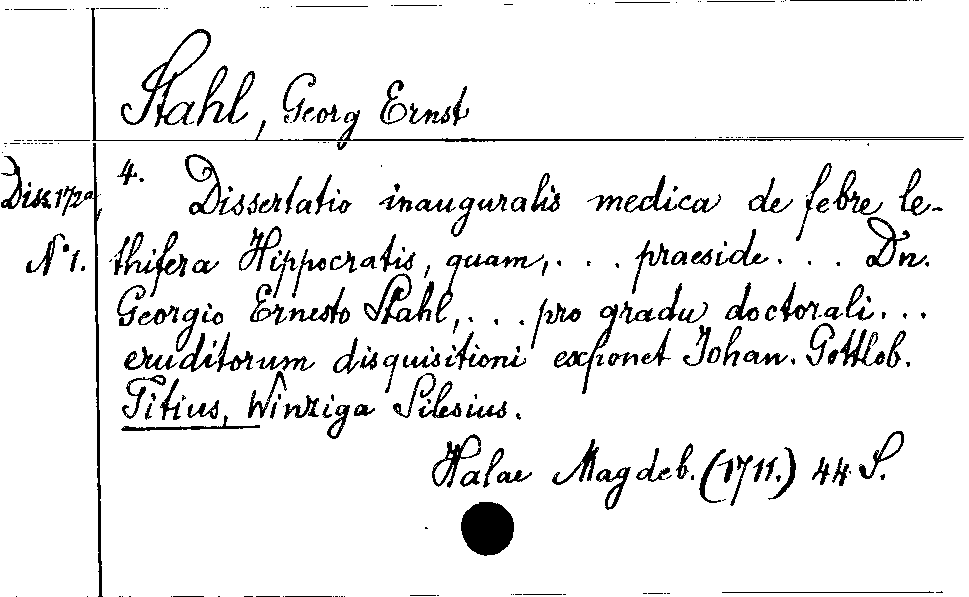 Stahl, Georg Ernst
Diss. 172a,
N° 1.
4. Dissertatio inauguralis medica de febre le-
thifera Hippocratis, quam, . . . praeside . . . Dn.
Georgio Ernesto Stahl, . . . pro gradu doctorali . . .
eruditorum disquisitioni exponet Johan. Gottlob.
Titius, Winziga Silesius.
Halae Magdeb. (1711.) 44 S.